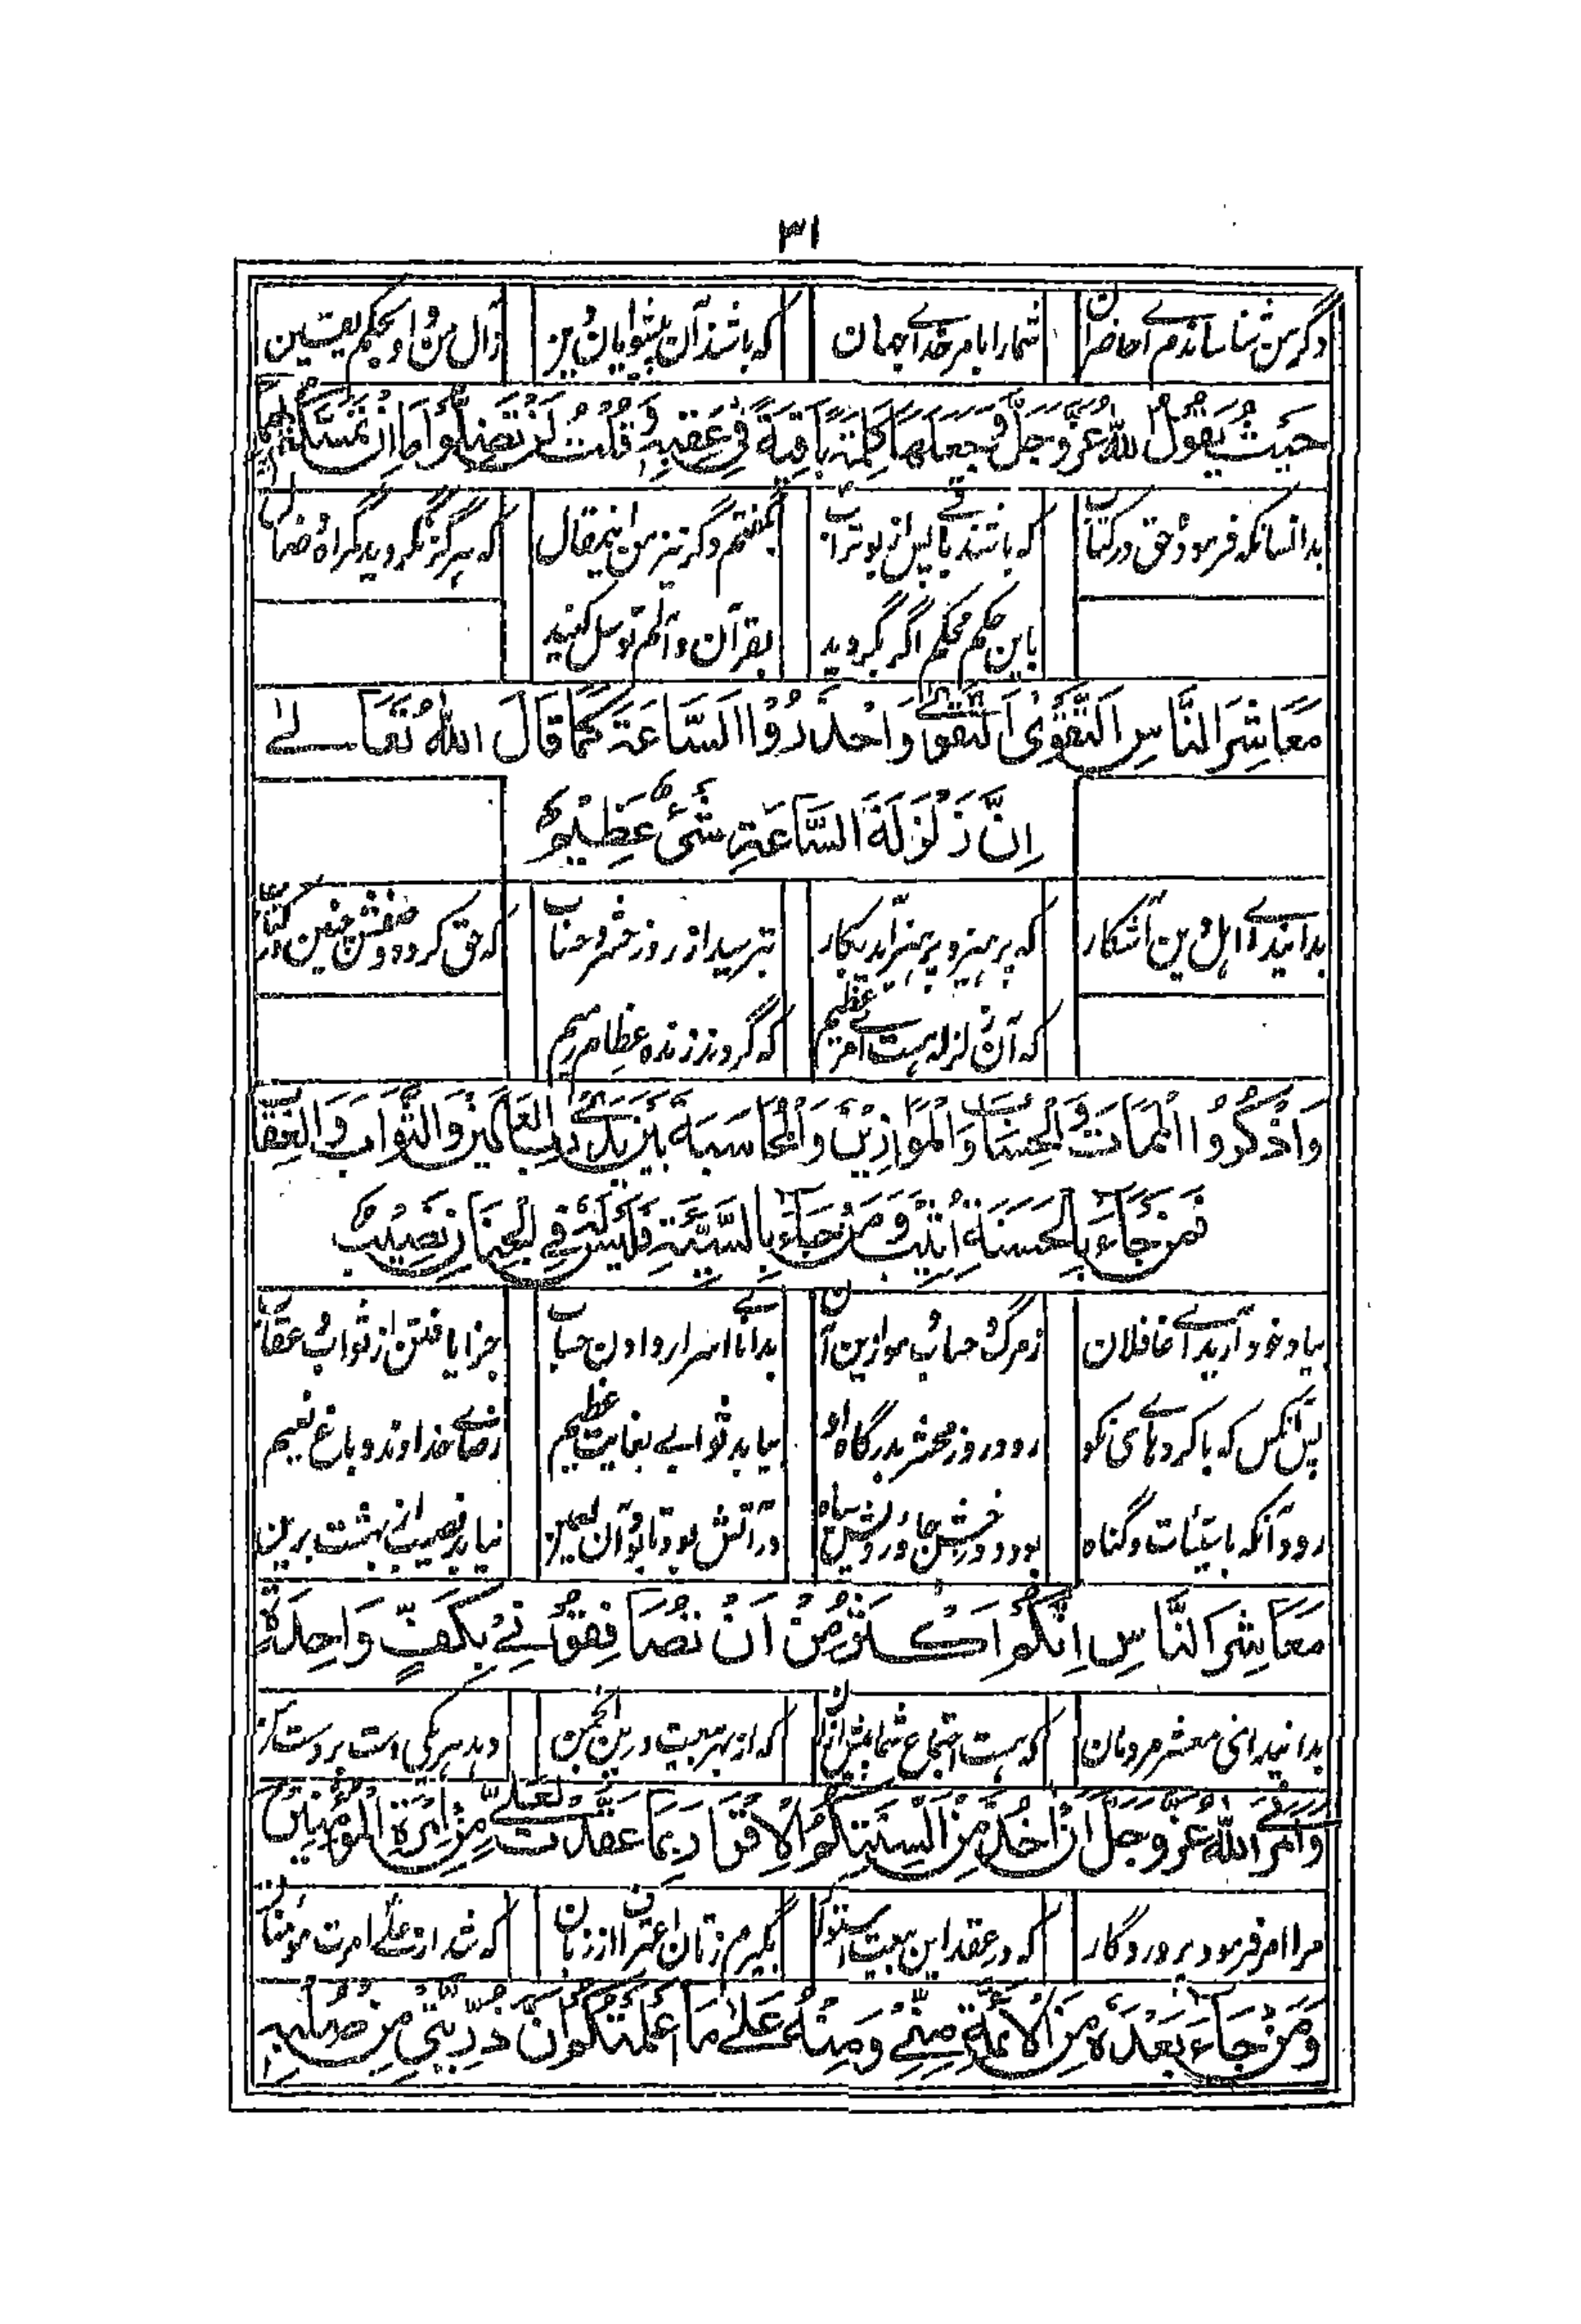 ۳۱
دگر من شناساندم اے حاضران شما را بامر خداے جهان که باشند آن پیشوایان دین ز آل من و او بحکم یقین
حَیْثُ یَقُوْلُ اللهُ عَزَّ وَ جَلَّ وَ جَعَلَهَا کَلِمَةً بَاقِیَةً فِیْ عَقِبِهٖ وَ قُلْتُ لَنْ تَضِلُّوْا مَا اِنْ تَمَسَّکْتُمْ بِهِمَا
بدانسانکه فرمود حق در کتاب که باشند باقے پس از بوتراب بگفتم دگر نیز من این مقال که هرگز نگردید گمراه ضال
باین حکم محکم اگر بگروید بقرآن و آلم توسل کنید
مَعَاشِرَ النَّاسِ اَلتَّقْوٰی اَلتَّقْوٰے وَ احْذَرُوْا السَّاعَةَ کَمَا قَالَ اللهُ تَعَالٰے
اِنَّ زَلْزَلَةَ السَّاعَةِ شَیْءٌ عَظِیْمٌ
بدانیدے اهل دین آشکار که پرهیز و پرهیز آید بکار بترسید از روز حشر و حساب که حق کرده وصفش چنین در کتاب
که آن زلزله هست امرے عظیم که گردند زنده عظام رمیم
وَ اذْکُرُوا الْمَمَاتَ وَ الْحِسَابَ وَ الْمَوَازِیْنَ وَ الْمُحَاسَبَةَ بَیْنَ یَدَیْ رَبِّ الْعَالَمِیْنَ وَ الثَّوَابَ وَ الْعِقَابَ
فَمَنْ جَاءَ بِالْحَسَنَةِ اُثِیْبَ وَ مَنْ جَاءَ بِالسَّیِّئَةِ فَلَیْسَ لَهٗ فِی الْجِنَانِ نَصِیْبٌ
بیاد خود آرید اے غافلان ز مرگ و حساب و موازین آن بداناے اسرار دادن حساب جزا یافتن از ثواب و عقاب
پس آنکس که با کردهاے نکو رود روز محشر بدرگاه او بیابد ثوابے بغایت عظیم رضاے خداوند و باغ نعیم
رود آنکه با سیئات و گناه بود دوزخش جاے و رویش سیاه در آتش بود تا بود آن لعین نیابد نصیب از بهشت برین
مَعَاشِرَ النَّاسِ اِنَّکُمْ اَکْثَرُ مِنْ اَنْ تُصَافِقُوْنِیْ بِکَفٍّ وَاحِدَةٍ
بدانید ای معشر مردمان که هست اجتماع شما بیش ازان که از بهر بیعت درین انجمن دهد هر یکی دست بر دست من
وَ اَمَرَنِیَ اللهُ عَزَّ وَ جَلَّ اَنْ اٰخُذَ مِنْ اَلْسِنَتِکُمُ الْاِقْرَارَ بِمَا عَقَدْتُ لِعَلِیٍّ مِنْ اِمْرَةِ الْمُؤْمِنِیْنَ
مرا امر فرمود پروردگار که در عقد این بیعت استوار بگیرم زتان اعتراف از زبان که شد از علی امرت مومنان
وَ مَنْ جَاءَ بَعْدَهٗ مِنَ الْاَئِمَّةِ مِنِّیْ وَ مِنْهُ عَلٰے مَا اَعْلَمْتُکُمْ اَنَّ ذُرِّیَّتِیْ مِنْ صُلْبِهٖ